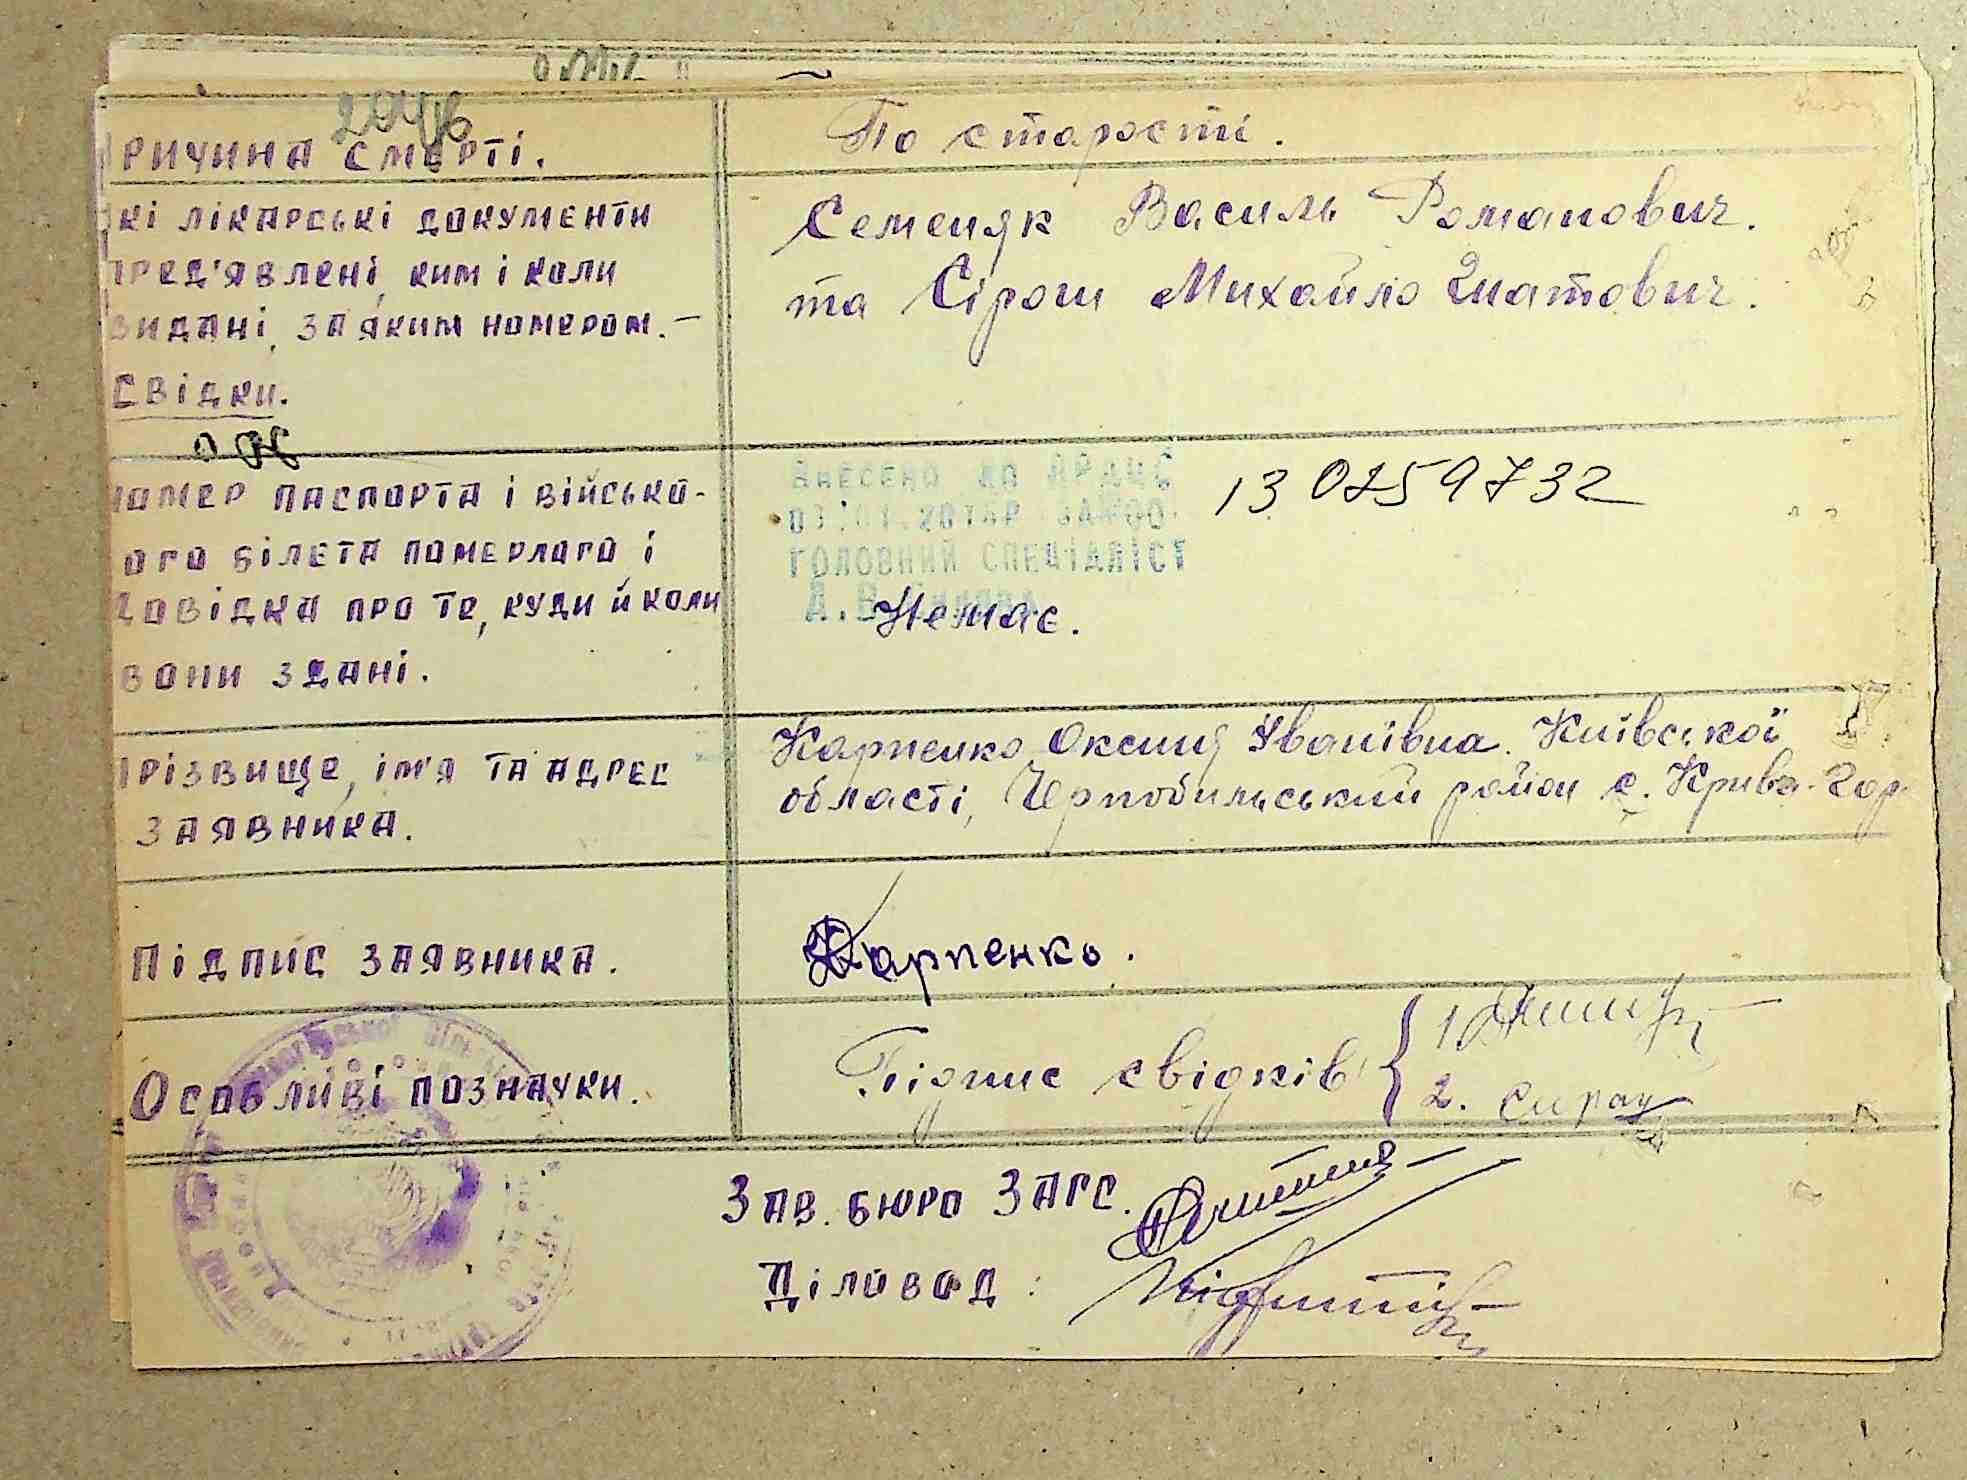 ричина смерті.
По старості.
кі лікарські документи
пред'явлені, ким і коли
видані, за яким номером.-
Свідки.
Семеняк Василь Романович.
та Сірош Михайло Гнатович.
номер паспорта і військо-
ого білета померлого і
довідка про те, куди й коли
вони здані.
Внесено до ДРАЦС
головний спеціаліст
13 0259732
Немає.
різвище, ім'я та адрес
заявника.
Карпенко Оксана Іванівна. Київської
області, Чернобильський район с. Крива-Гор
Підпис заявника.
Карпенко.
Особливі познаучки.
Підпис свідків
1
2. Сирош
Зав. бюро ЗАГС.
Діловод: